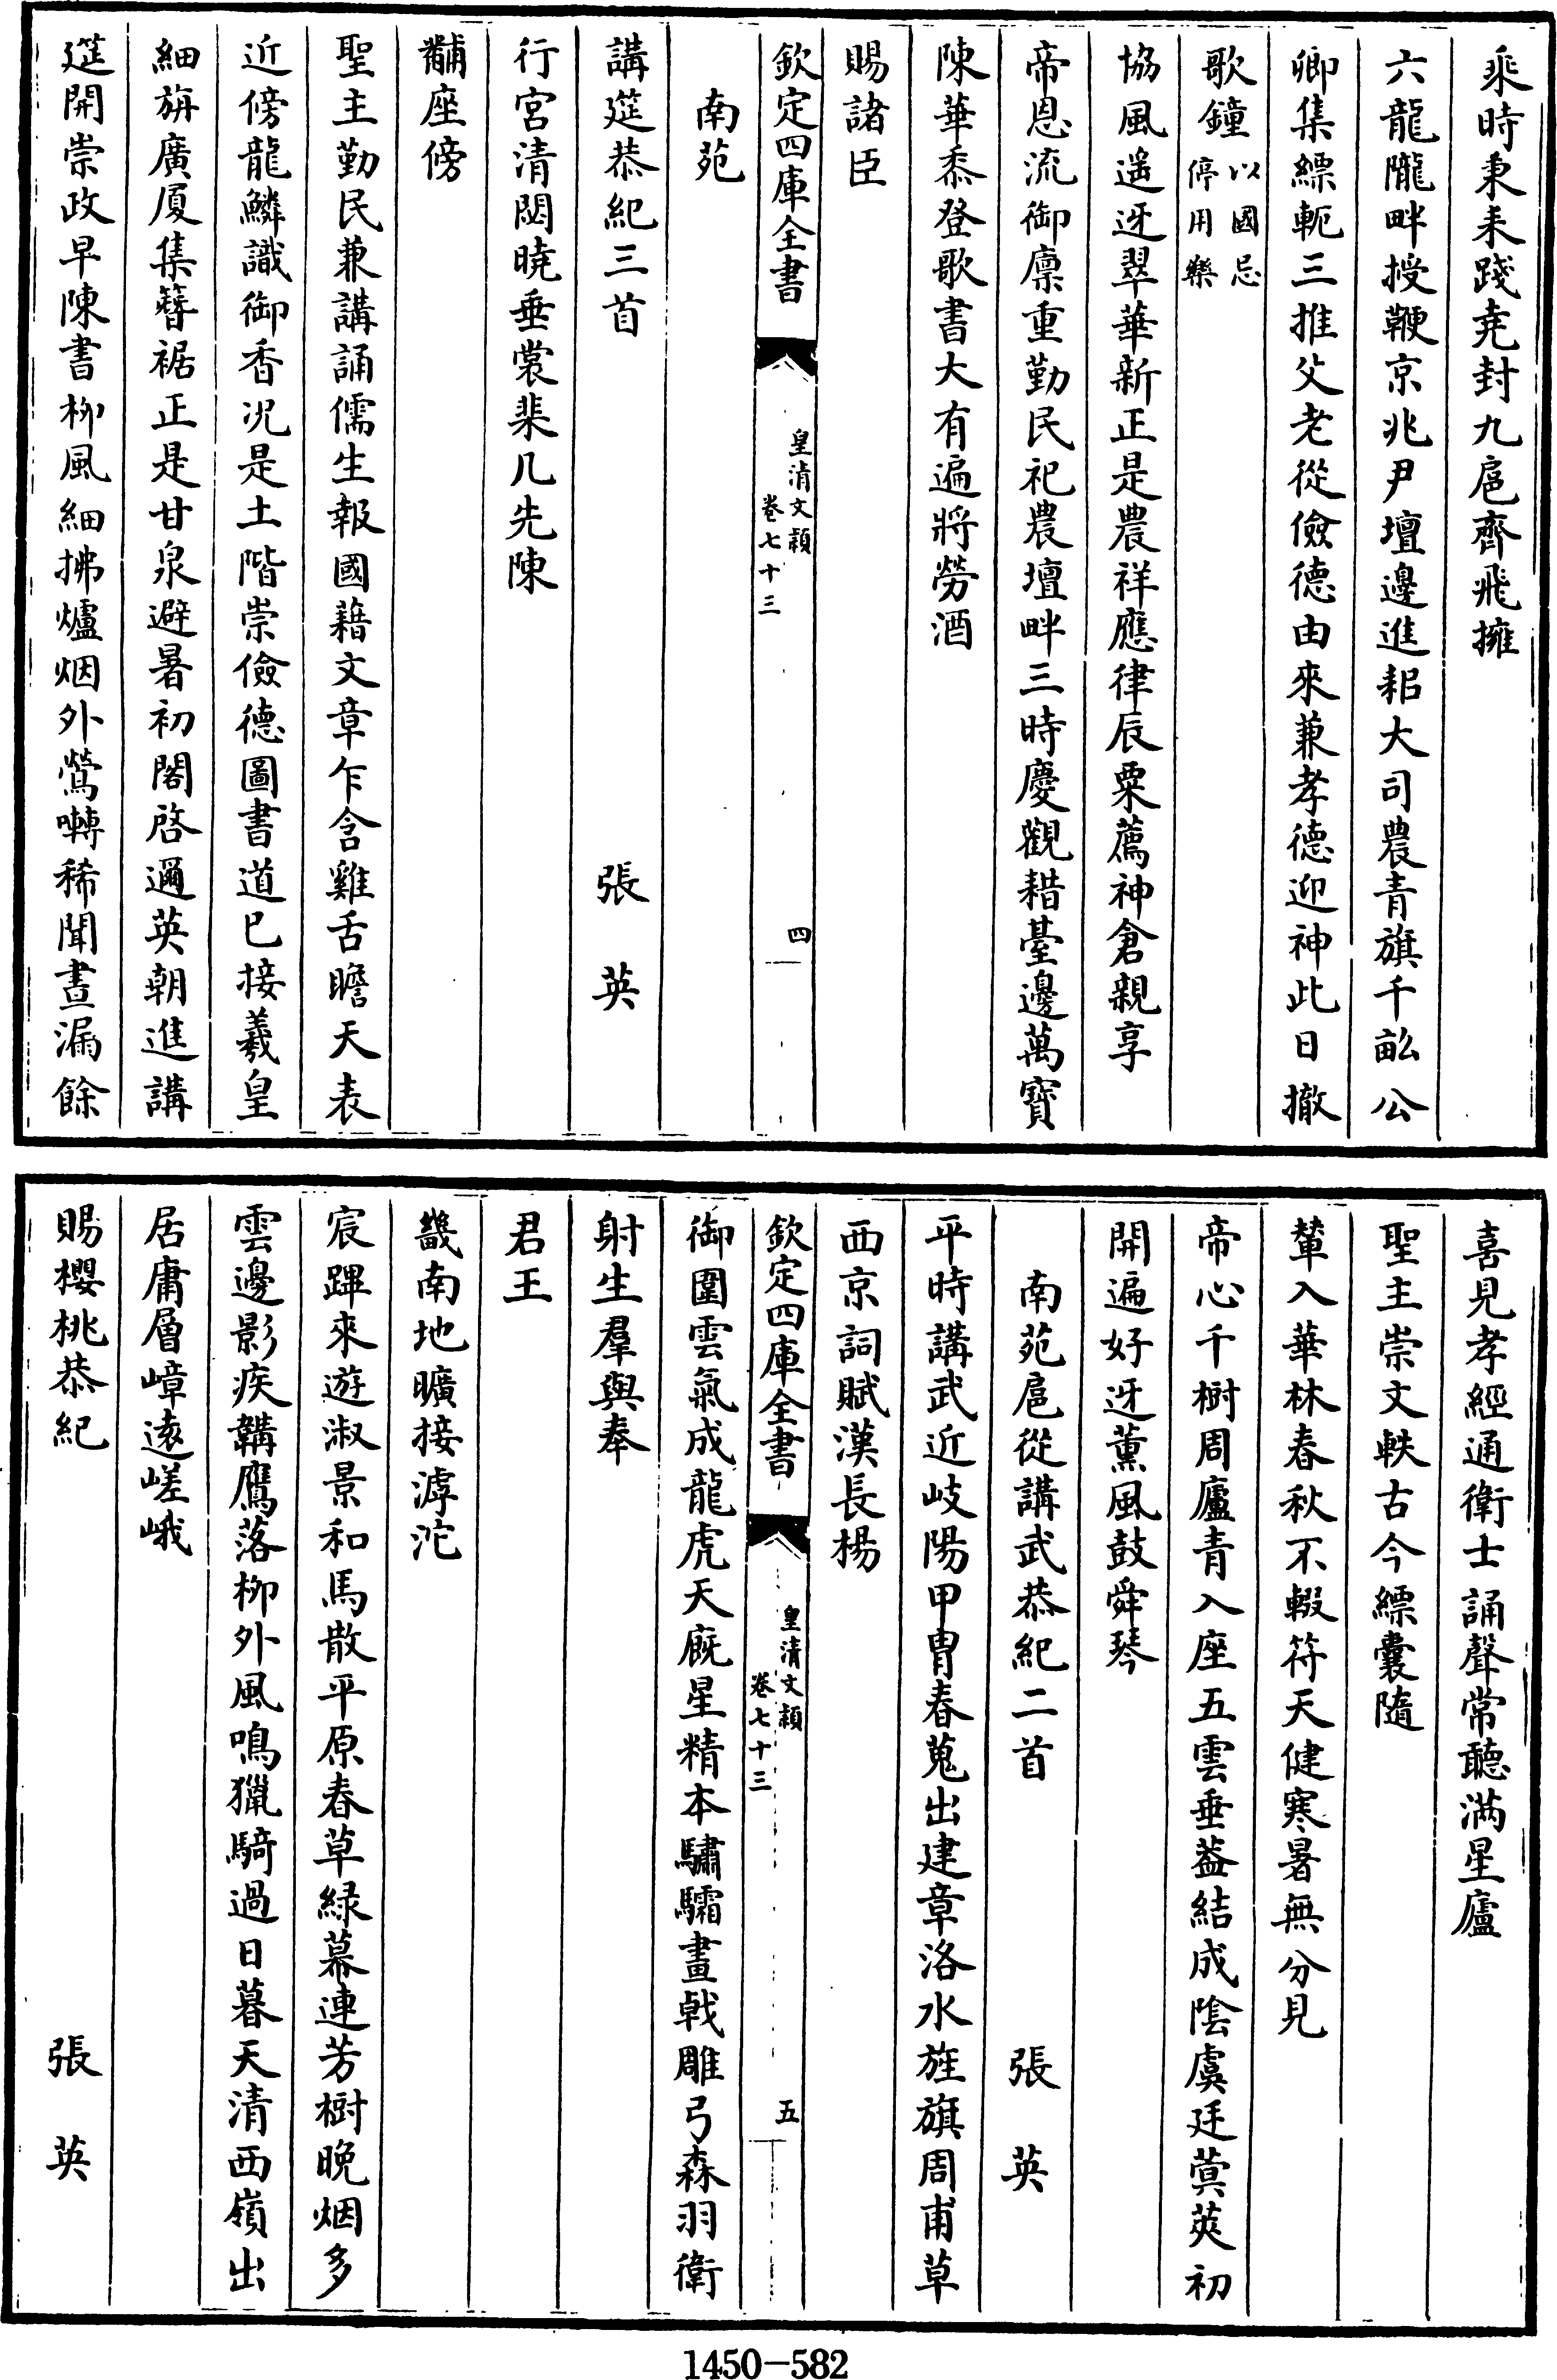 乘時秉耒踐堯封九扈齊飛擁
六龍隴畔授鞭京兆尹壇邊進耜大司農青旗千畝公
卿集縹軛三推父老從儉德由來兼孝德迎神此日撤
歌鐘以國忌停用樂
協風遥迓翠華新正是農祥應律辰粟薦神倉親享
帝恩流御廪重勤民祀農壇畔三時慶觀耤臺邊萬寶
陳華黍登歌書大有遍將勞酒
賜諸臣
欽定四庫全書
皇清文穎
卷七十三
四
南苑
講筵恭紀三首
張英
行宫清閟曉垂裳棐几先陳
黼座傍
聖主勤民兼講誦儒生報國藉文章乍含雞舌瞻天表
近傍龍鱗識御香况是土階崇儉德圖書道已接羲皇
細旃廣厦集簪裾正是甘泉避暑初閣啓邇英朝進講
筵開崇政早陳書柳風細拂爐烟外鶯囀稀聞晝漏餘
喜見孝經通衛士誦聲常聽满星廬
聖主崇文軼古今縹囊隨
輦入華林春秋不輟符天健寒暑無分見
帝心千樹周廬青入座五雲垂葢結成陰虞廷蓂莢初
開遍好迓薰風鼓舜琴
南苑扈從講武恭紀二首
張英
平時講武近岐陽甲胄春蒐出建章洛水旌旗周甫草
西京詞賦漢長楊
欽定四庫全書
皇清文穎
卷七十三
五
御圍雲氣成龍虎天廐星精本驌驦畫戟雕弓森羽衛
射生羣與奉
君王
畿南地曠接滹沱
宸蹕來遊淑景和馬散平原春草緑幕連芳樹晚烟多
雲邊影疾韝鷹落柳外風鳴獵騎過日暮天清西嶺出
居庸層嶂遠嵯峨
賜櫻桃恭紀
張英
1450-582